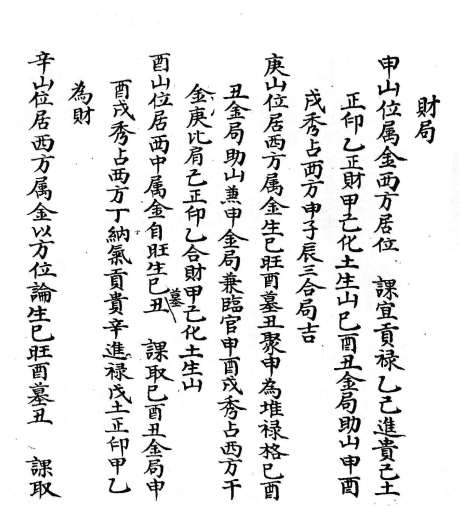 財局
申山位属金西方居位　課宜貢禄乙己進貴己土
正印乙正財甲己化土生山巳酉丑金局助山申酉
戌秀占西方申子辰三合局吉
庚山位居西方属金生巳旺酉墓丑聚申為堆禄格巳酉
丑金局助山兼申金局兼臨官申酉戌秀占西方干
金庚比肩己正印乙合財甲己化土生山
酉山位居西中属金自旺生巳墓丑　課取巳酉丑金局申
酉戌秀占西方丁納氣貢貴辛進禄戊土正印甲乙
為財
辛山位居西方属金以方位論生巳旺酉墓丑　課取